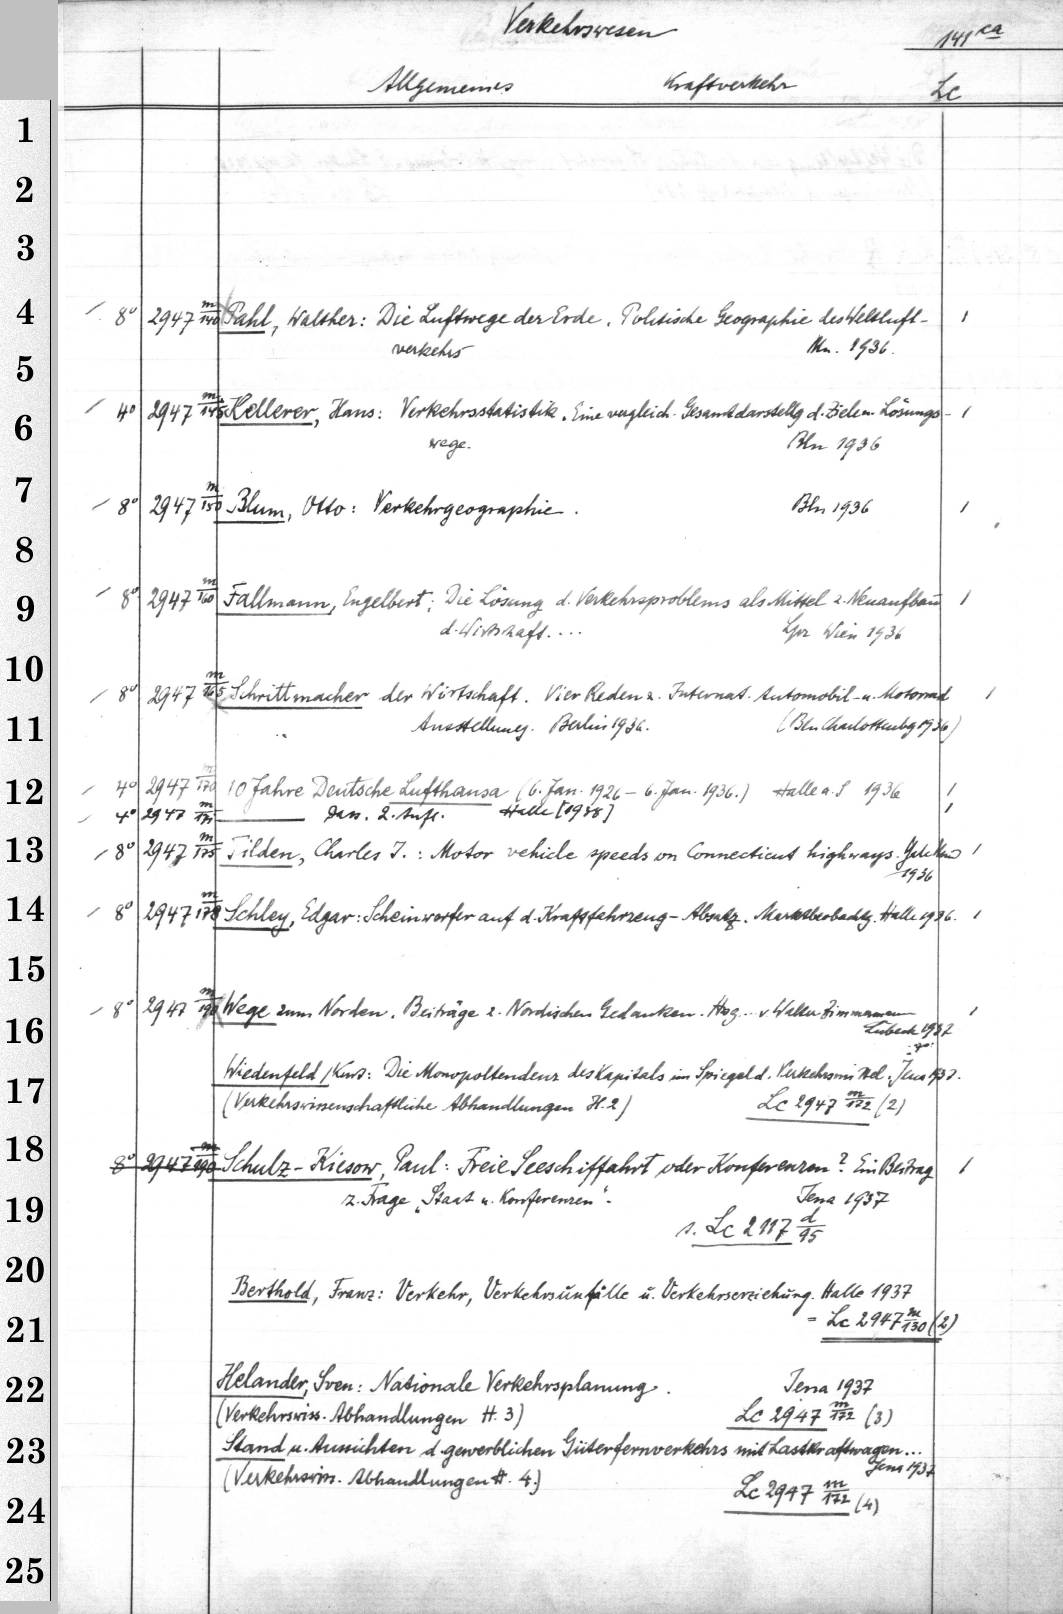 Verkehrswesen 141 ca
Allgemeines Kraftverkehr Lc
1
2
3
4 / 8° 2947 m/140 Pahl, Walther: Die Luftwege der Erde. Politische Geographie des Weltluft- 1
verkehrs Mn. 1936.
5
/ 4° 2947 m/145 Kellerer, Hans: Verkehrsstatistik. Eine vergleich. Gesamtdarstellg d. Ziele u. Lösungs- 1
6 wege. Bln 1936
7 / 8° 2947 m/150 Blum, Otto: Verkehrgeographie. Bln 1936 1
8
9 / 8° 2947 m/160 Fallmann, Engelbert: Die Lösung d. Verkehrsproblems als Mittel z. Neuaufbau 1
d. Wirtschaft.... Lpz Wien 1936
10
/ 8° 2947 m/165 Schrittmacher der Wirtschaft. Vier Reden z. Internat. Automobil- u. Motorrad 1
11 Ausstellung. Berlin 1936. (Bln Charlottenbg 1936)
12 / 4° 2947 m/170 10 Jahre Deutsche Lufthansa (6. Jan. 1926 – 6. Jan. 1936.) Halle a. S 1936 1
/ 4° 2947 m/171 ——— Dass. 2. Aufl. Halle [1938] 1
13 / 8° 2947 m/175 Tilden, Charles J.: Motor vehicle speeds on Connecticut highways. Yale 1
1936
14 / 8° 2947 m/178 Schley, Edgar: Scheinwerfer auf d. Kraftfahrzeug-Absatz. Marktbeobachtg. Halle 1936. 1
15
16 / 8° 2947 m/190 Wege zum Norden. Beiträge z. Nordischen Gedanken. Hsg. v. Walter Zimmermann 1
Lübeck 1937
17 Wiedenfeld, Kurt: Die Monopoltendenz des Kapitals im Spiegel d. Verkehrsmittel. Jena 1937.
(Verkehrswissenschaftliche Abhandlungen H. 2) Lc 2947 m/172 (2)
18 8° 2947 m/190 Schulz-Kiesow, Paul: Freie Seeschiffahrt oder Konferenzen? Ein Beitrag 1
19 z. Frage „Staat u. Konferenzen“. Jena 1937
s. Lc 2117 d/95
20 Berthold, Franz: Verkehr, Verkehrsunfälle u. Verkehrserziehung. Halle 1937
21 = Lc 2947 m/130 (2)
22 Helander, Sven: Nationale Verkehrsplanung. Jena 1937
(Verkehrswiss. Abhandlungen H. 3) Lc 2947 m/172 (3)
23 Stand u. Aussichten d. gewerblichen Güterfernverkehrs mit Lastkraftwagen...
Jena 1937
(Verkehrswiss. Abhandlungen H. 4.)
24 Lc 2947 m/172 (4)
25